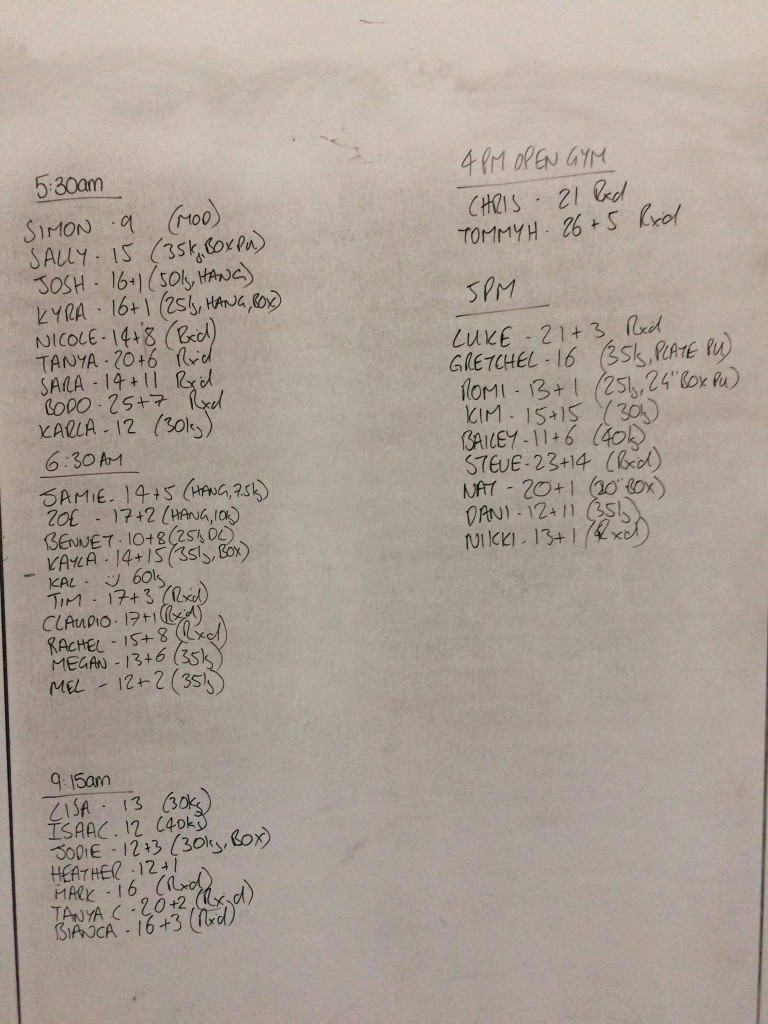 5:30am
SIMON - 9 (MOD)
SALLY - 15 (35kg, BOX PU)
JOSH - 16+1 (50kg, HANG)
KYRA - 16+1 (25kg, HANG, BOX)
NICOLE - 14+8 (Rxd)
TANYA - 20+6 Rxd
SARA - 14+11 Rxd
BODO - 25+7 Rxd
KARLA - 12 (30kg)
6:30AM
JAMIE - 14+5 (HANG, 7.5kg)
ZOE - 17+2 (HANG, 10kg)
BENNET - 10+8 (25kg DL)
KAYLA - 14+15 (35kg, BOX)
KAL - 60kg
TIM - 17+3 (Rxd)
CLAUDIO - 17+1 (Rxd)
RACHEL - 15+8 (Rxd)
MEGAN - 13+6 (35kg)
MEL - 12+2 (35kg)
9:15am
LISA - 13 (30kg)
ISAAC - 12 (40kg)
JODIE - 12+3 (30kg, BOX)
HEATHER - 12+1
MARK - 16 (Rxd)
TANYA C - 20+2 (Rxd)
BIANCA - 16+3 (Rxd)
4PM OPEN GYM
CHRIS - 21 Rxd
TOMMY H - 26+5 Rxd
5PM
LUKE - 21+3 Rxd
GRETCHEL - 16 (35kg, PLATE PU)
ROMI - 13+1 (25kg, 24" BOX PU)
KIM - 15+15 (30kg)
BAILEY - 11+6 (40kg)
STEVE - 23+14 (Rxd)
NAT - 20+1 (20" BOX)
DANI - 12+11 (35kg)
NIKKI - 13+1 (Rxd)